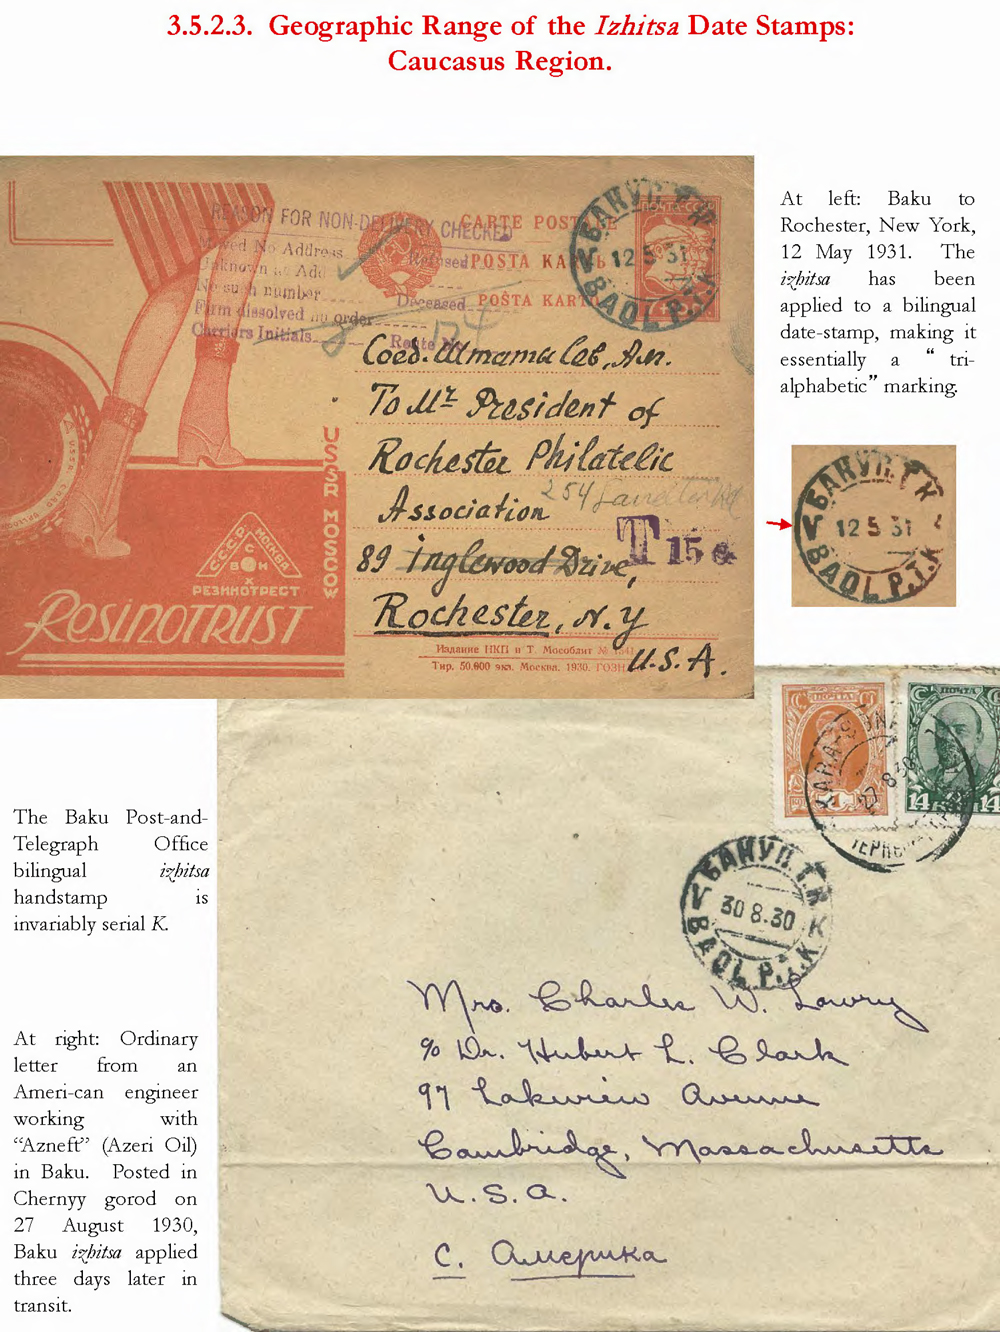 3.5.2.3. Geographic Range of the Izhitsa Date Stamps:
Caucasus Region.
REASON FOR NON-DELIVERY CHECKED
Moved No Address
Unknown at Add
Refused
No such number
Deceased
Firm dissolved no order
Carriers Initials
Route No
174
CARTE POSTALE
POSTA KARTЬ
POŠTA KARTO
ПОЧТА СССР
БАКУ П.Т.К
12 5 31
BAQЬ P.T.K
Соед. Штаты Сев. Ам.
To Mr President of
Rochester Philatelic
Association
254
89 Inglewood Drive,
Rochester, N.Y
U.S.A.
T 15 c
USSR MOSCOW
СССР
МОСКВА
РЕЗИНОТРЕСТ
RESINOTRUST
Издание НКП и Т. Мособлит №
Тир. 50,000 экз. Москва. 1930. ГОЗН
At left: Baku to
Rochester, New York,
12 May 1931. The
izhitsa has been
applied to a bilingual
date-stamp, making it
essentially a “ tri-
alphabetic” marking.
БАКУ П.Т.К
12 5 31
BAQЬ P.T.K
ПОЧТА
14 КОП 14
27 8 30
The Baku Post-and-
Telegraph Office
bilingual izhitsa
handstamp is
invariably serial K.
БАКУ П.Т.К
30 8.30
K
BAQЬ P.T.K
Mrs. Charles W. Lowry
% Dr. Hubert L. Clark
97 Lakeview Avenue
Cambridge, Massachusetts
U.S.A.
С. Америка
At right: Ordinary
letter from an
Ameri-can engineer
working with
“Azneft” (Azeri Oil)
in Baku. Posted in
Chernyy gorod on
27 August 1930,
Baku izhitsa applied
three days later in
transit.